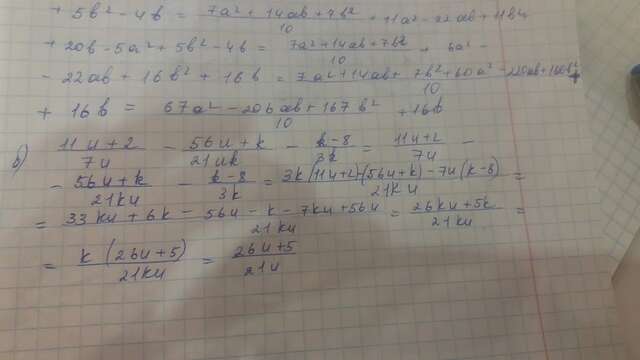 + 5b² - 4b = 7a² + 14ab + 7b² / 10 + 11a² - 22ab + 11b² +
+ 20b - 5a² + 5b² - 4b = 7a² + 14ab + 7b² / 10 + 6a² -
- 22ab + 16b² + 16b = 7a² + 14ab + 7b² + 60a² - 220ab + 160b² / 10 +
+ 16b = 67a² - 206ab + 167b² / 10 + 16b
в) 11u + 2 / 7u - 56u + k / 21uk - k - 8 / 3k = 11u + 2 / 7u -
- 56u + k / 21ku - k - 8 / 3k = 3k(11u + 2) - (56u + k) - 7u(k - 8) / 21ku =
= 33ku + 6k - 56u - k - 7ku + 56u / 21ku = 26ku + 5k / 21ku =
= k(26u + 5) / 21ku = 26u + 5 / 21u